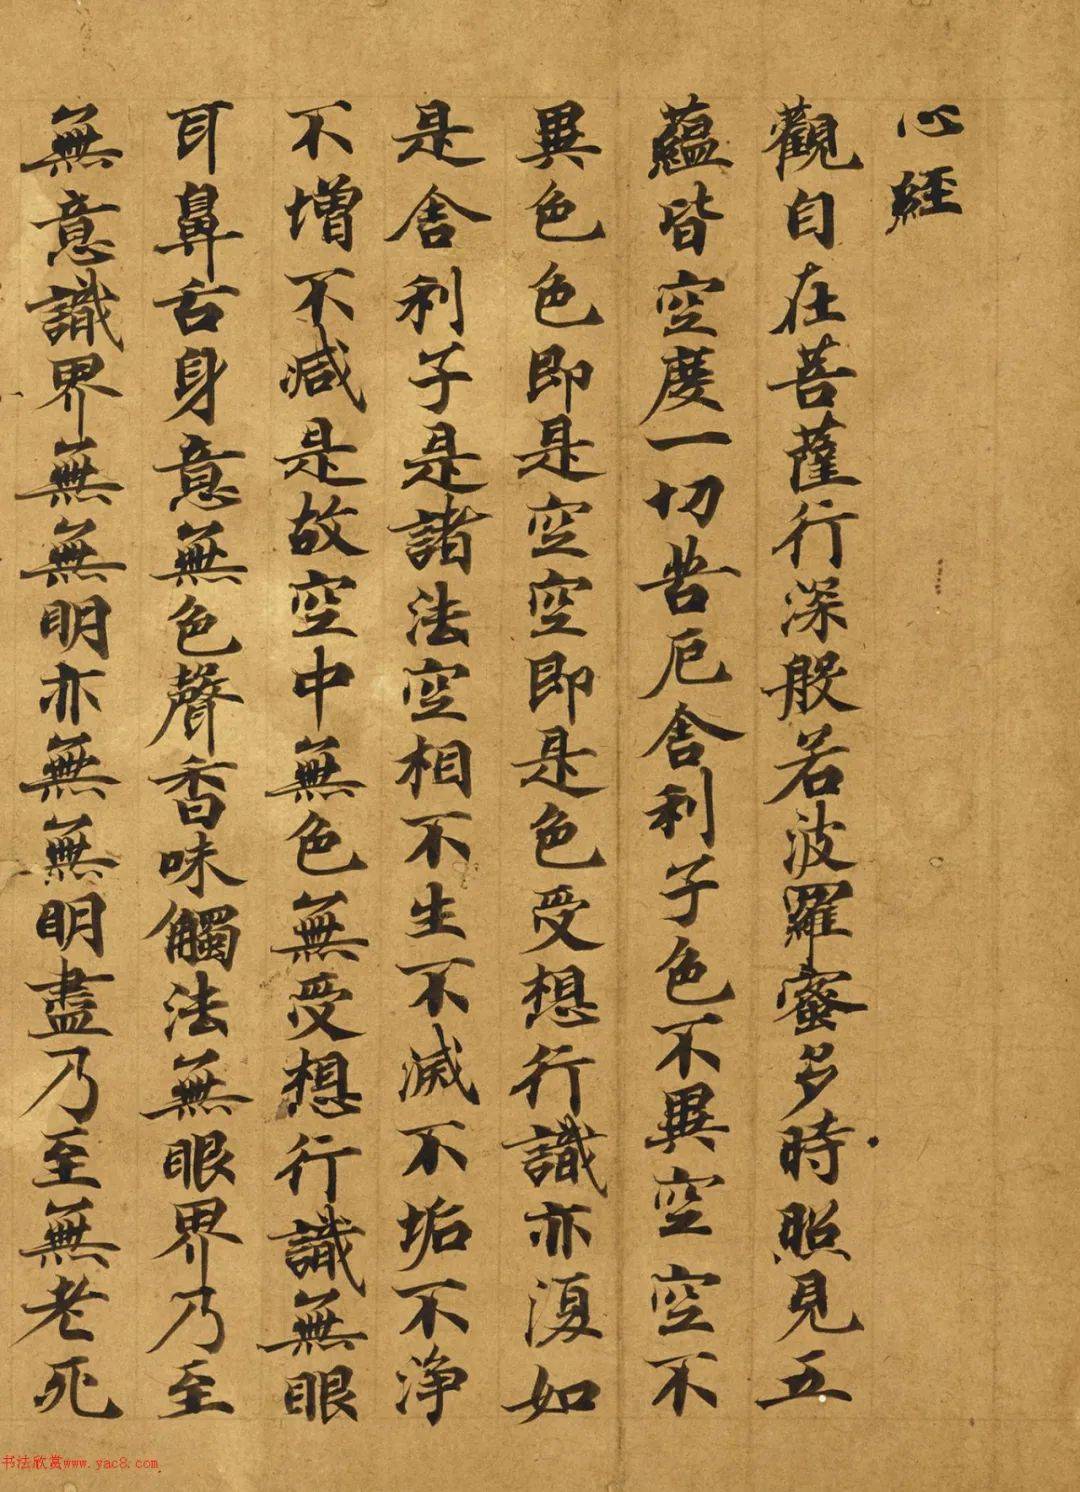 心經
觀自在菩薩行深般若波羅蜜多時照見五
蘊皆空度一切苦厄舍利子色不異空空不
異色色即是空空即是色受想行識亦復如
是舍利子是諸法空相不生不滅不垢不淨
不增不減是故空中無色無受想行識無眼
耳鼻舌身意無色聲香味觸法無眼界乃至
無意識界無無明亦無無明盡乃至無老死
书法欣赏www.yac8.com